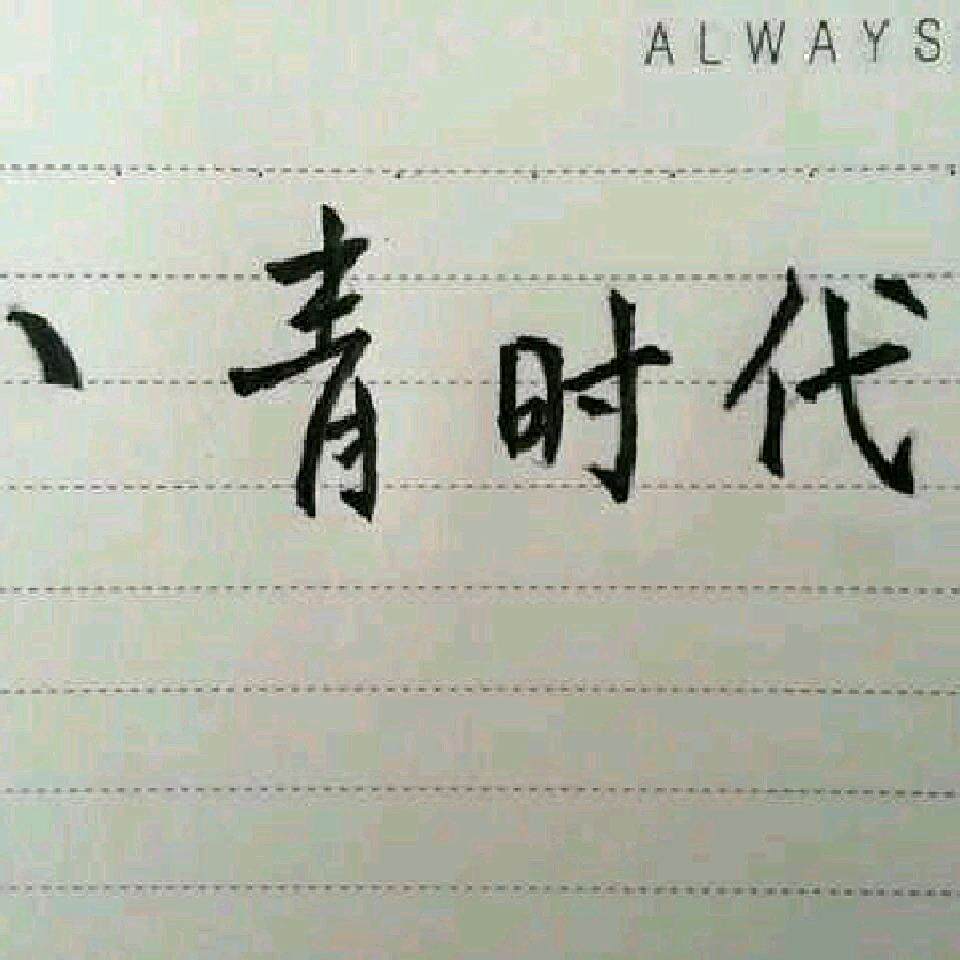 ALWAYS
青时代